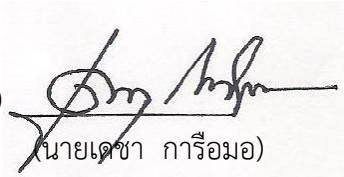 (นายเดชา การือมอ)